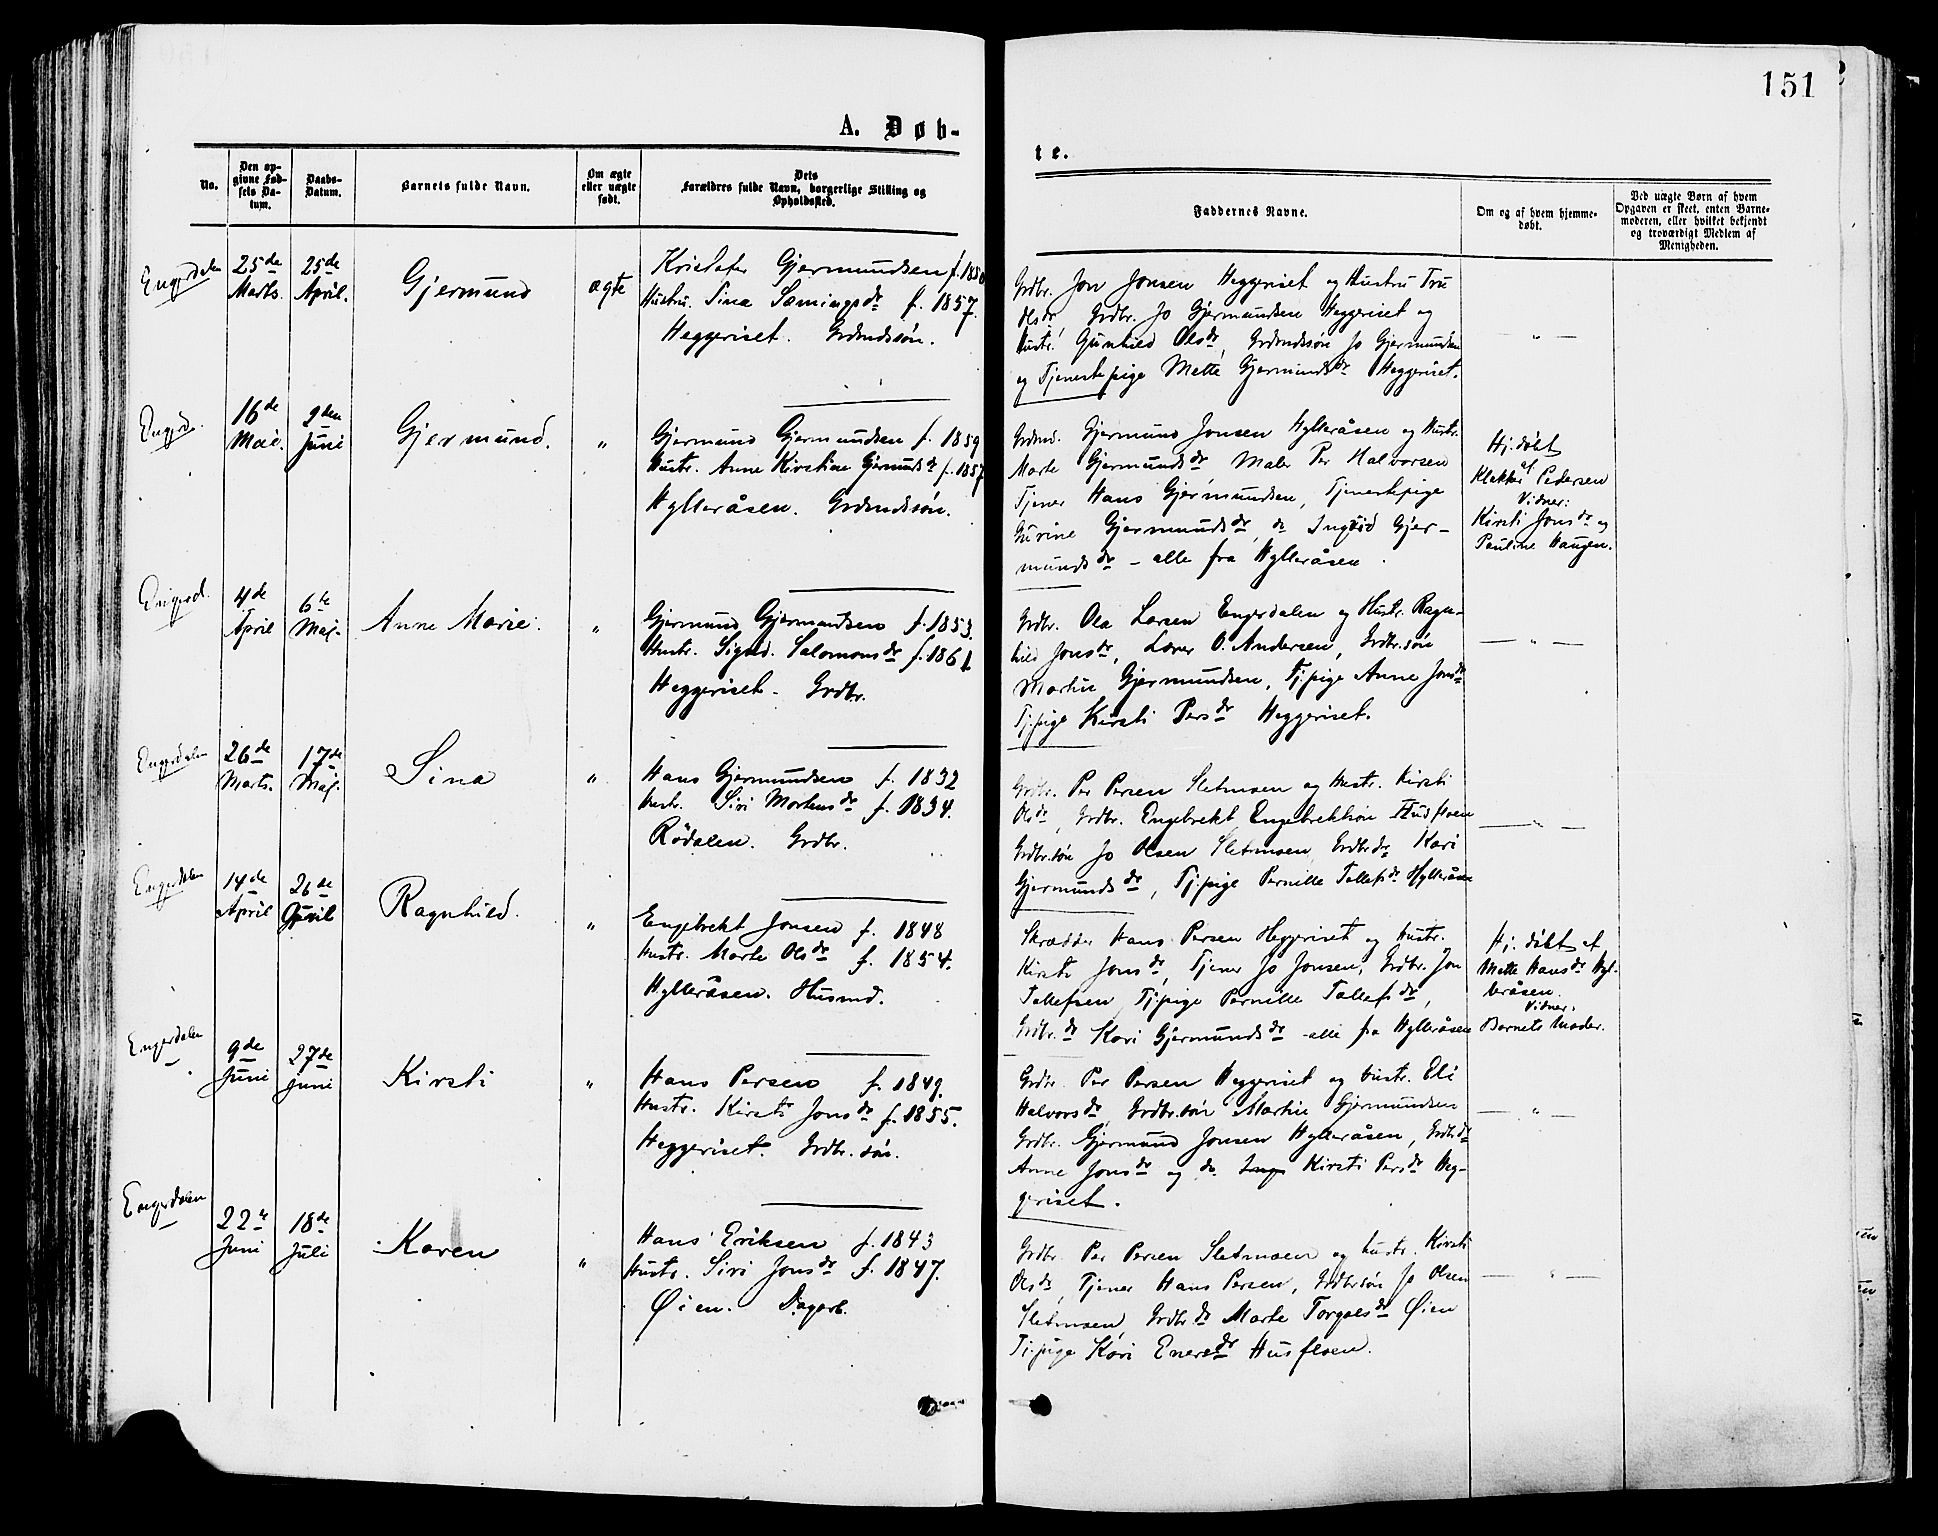 151
A. Døb-
te.
No.
Den op-
givne Fød-
sels Da-
tum.
Daabs-
Datum.
Barnets fulde Navn.
Om ægte
eller uægte
født.
Dets
Forældres fulde Navn, borgerlige Stilling og
Opholdssted.
Faddernes Navne.
Om og af hvem hjemme-
døbt.
Ved uægte Børn af hvem
Opgaven er skeet, enten Barne-
moderen, eller hvilket bekjendt
og troværdigt Medlem af
Menigheden.
Engerdalen
25de
Marts.
25de
April.
Gjermund
ægte
Kristofer Gjermundsen f. 1850
Hustru. Sina Sæmingsdr f. 1857.
Heggeriset. Grdmdssøn.
Grdbr. Jon Jonsen Heggeriset og Hustru Tru
Olsdr, Grdbr. Jo Gjermundsen Heggeriset og
Hustr. Gunhild Olsdr, Grdmdssøn Jo Gjermundsen
og Tjenestepige Mette Gjermundsdr Heggeriset.
— " —
Engerd.
16de
Mai.
9den
Juni
Gjermund.
"
Gjermund Gjermundsen f. 1859
Hustr. Anne Kirstine Gjermundsdr f. 1857
Hylleråsen. Grdmdssøn.
Grdmd. Gjermund Jonsen Hylleråsen og Hustr.
Marte Gjermundsdr Maler Per Halvorsen
Tjener Hans Gjermundsen, Tjenestepige
Gurine Gjermundsdr, do Ingrid Gjer-
mundsdr - alle fra Hylleråsen.
Hj. døbt
af
Klokker Pedersen
Vidner:
Kirsti Jonsdr og
Pauline Haugen.
Engerd.
4de
April
6te
Maj.
Anne Marie.
"
Gjermund Gjermundsen f. 1853.
Hustr. Sigrd. Salomonsdr f. 1861
Heggeriset. Grdbr.
Grdbr. Ola Larsen Engerdalen og Hustr. Ragn-
hild Jonsdr, Lærer O. Andersen, Grdbr.søn
Martin Gjermundsen, Tj.pige Anne Jonsdr
Tj.pige Kirsti Persdr Heggeriset.
— " —
Engerdalen
26de
Marts.
17de
Maj.
Sina
"
Hans Gjermundsen f. 1832
Hustr. Siri Mortensdr f. 1834.
Rødalen. Grdbr.
Grdbr. Per Persen Sletmoen og Hustr. Kirsti
Olsdr, Grdbr. Engebrekt Engebrektsøn Husfloen
Grdbr.søn Jo Olsen Sletmoen, Grdbr.dr Kari
Gjermundsdr, Tj.pige Pernille Tollefsdr Hylleråsen
— " —
Engerdalen
14de
April
26de
April
Ragnhild.
"
Engebrekt Jonsen f. 1848
Hustr. Marte Olsdr f. 1854.
Hylleråsen. Husmd.
Skrædder Hans Persen Heggeriset og Hustr.
Kirsti Jonsdr, Tjener Jo Jonsen, Grdbr. Jon
Tollefsen, Tj.pige Pernille Tollefsdr,
Grdbr.dr Kari Gjermundsdr - alle fra Hylleråsen
Hj. døbt af
Mette Hansdr Hyl-
leråsen.
Vidner.
Barnets Moder.
Engerdalen
9de
Juni
27de
Juni
Kirsti
"
Hans Persen f. 1849.
Hustr. Kirsti Jonsdr f. 1855.
Heggeriset. Grdbr. søn.
Grdbr. Per Persen Heggeriset og Hustr. Eli
Halvorsdr, Grdbr.søn Martin Gjermundsen
Grdbr. Gjermund Jonsen Hylleråsen, Grdbr.dr
Anne Jonsdr og do Kirsti Persdr Heg-
geriset.
— " —
Engerdalen
22de
Juni
18de
Juli
Karen
"
Hans Eriksen f. 1843
Hustr. Siri Jonsdr f. 1847.
Øien. Dagarb.
Grdbr. Per Persen Sletmoen og hustr. Kirsti
Olsdr, Tjener Hans Persen, Grdbr.søn Jo Olsen
Sletmoen, Grdbr.dr Marte Torgalsdr Øien
Tj.pige Kari Enersdr Husfloen.
— " —